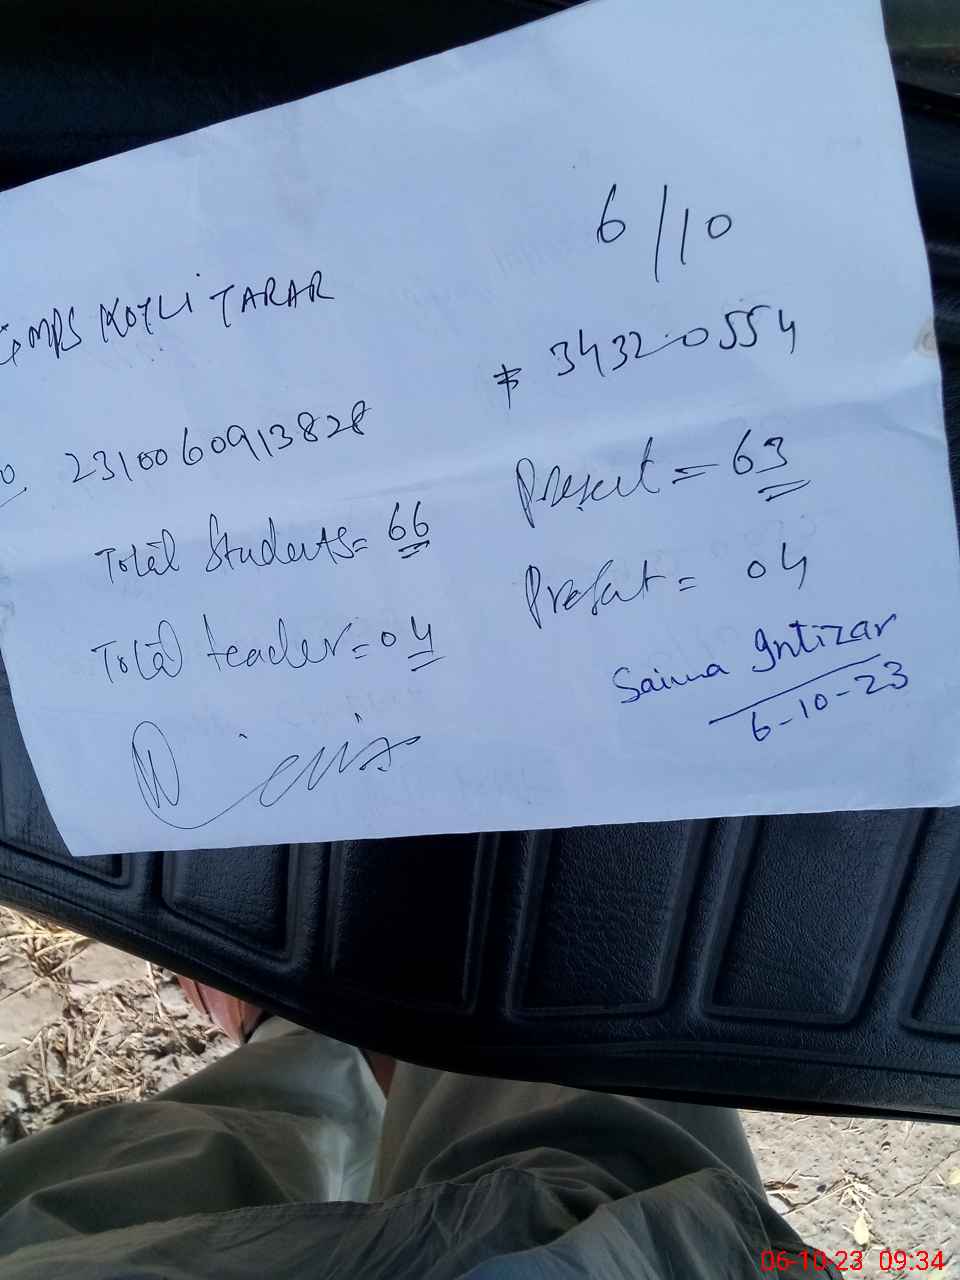 6/10
GMPS KOTLI TARAR
# 34320554
0 2310060913828
Total Students = 66 Present = 63
Total teacher = 04 Present = 04
Saima Intizar
6-10-23
06-10-23 09:34